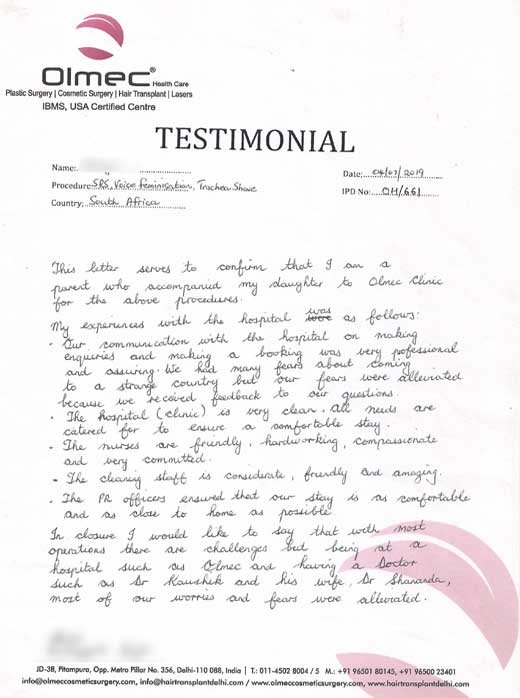 Olmec® Health Care
Plastic Surgery | Cosmetic Surgery | Hair Transplant | Lasers
IBMS, USA Certified Centre
TESTIMONIAL
Name:
Date: 04/07/2019
Procedure: SRS, Voice feminisation, Trachea Shave
IPD No: OH/661
Country: South Africa
This letter serves to confirm that I am a
parent who accompanied my daughter to Olmec Clinic
for the above procedures.
My experiences with the hospital was as follows:
• Our communication with the hospital on making
enquiries and making a booking was very professional
and assuring. We had many fears about coming
to a strange country but our fears were alleviated
because we received feedback to our questions.
• The hospital (clinic) is very clean. All needs are
catered for to ensure a comfortable stay.
• The nurses are friendly, hardworking, compassionate
and very committed.
• The cleaning staff is considerate, friendly and amazing.
• The PR officers ensured that our stay is as comfortable
and as close to home as possible.
In closure I would like to say that with most
operations there are challenges but being at a
hospital such as Olmec and having a Doctor
such as Dr Kaushik and his wife, Dr
most of our worries and fears were alleviated.
JD-38, Pitampura, Opp. Metro Pillar No. 356, Delhi-110 088, India | T.: 011-4502 8004 / 5 M.: +91 96501 80145, +91 96500 23401
info@olmeccosmeticsurgery.com, info@hairtransplantdelhi.com / www.olmeccosmeticsurgery.com, www.hairtransplantdelhi.com